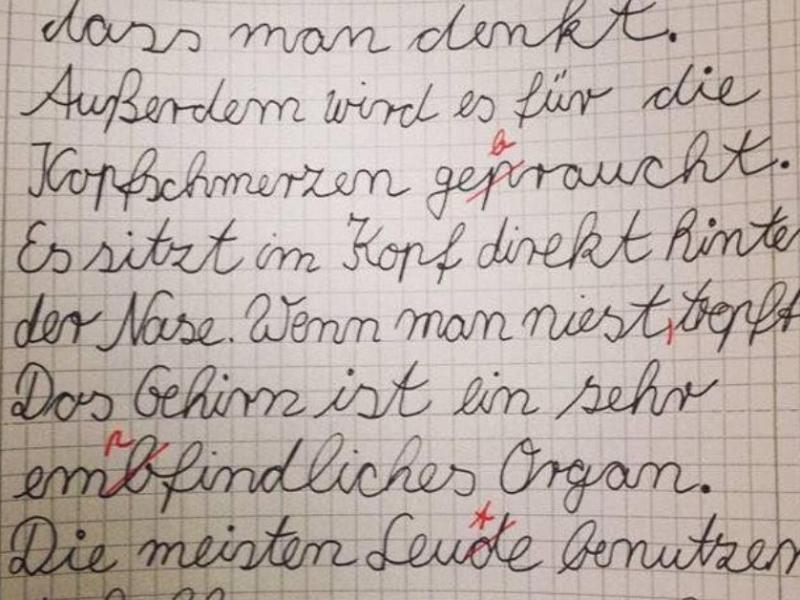 dass man denkt.
Außerdem wird es für die
b
Kopfschmerzen gepraucht.
Es sitzt im Kopf direkt hinte
der Nase. Wenn man niest, tropft
Das Gehirn ist ein sehr
p
embfindliches Organ.
t
Die meisten Leude benutzen